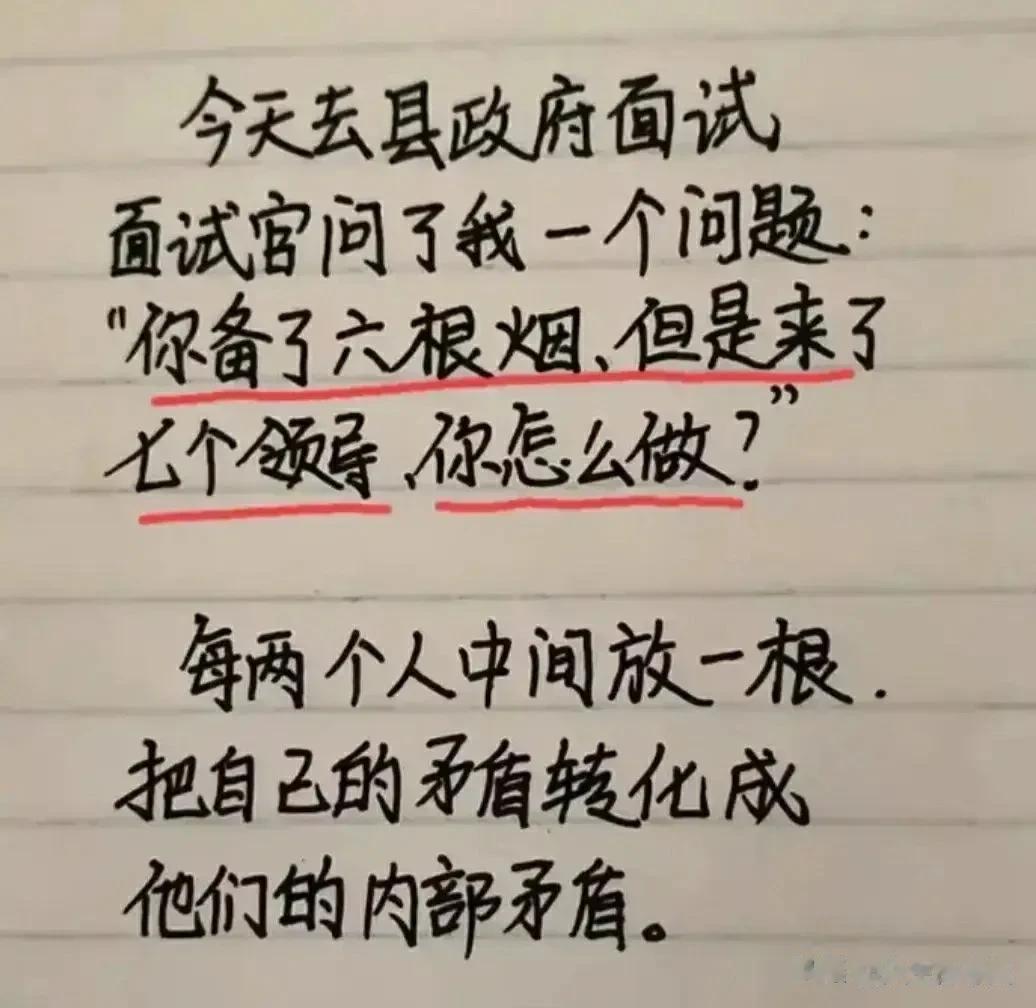 今天去县政府面试
面试官问了我一个问题：
"你备了六根烟、但是来了
七个领导、你怎么做？"
每两个人中间放一根.
把自己的矛盾转化成
他们的内部矛盾。